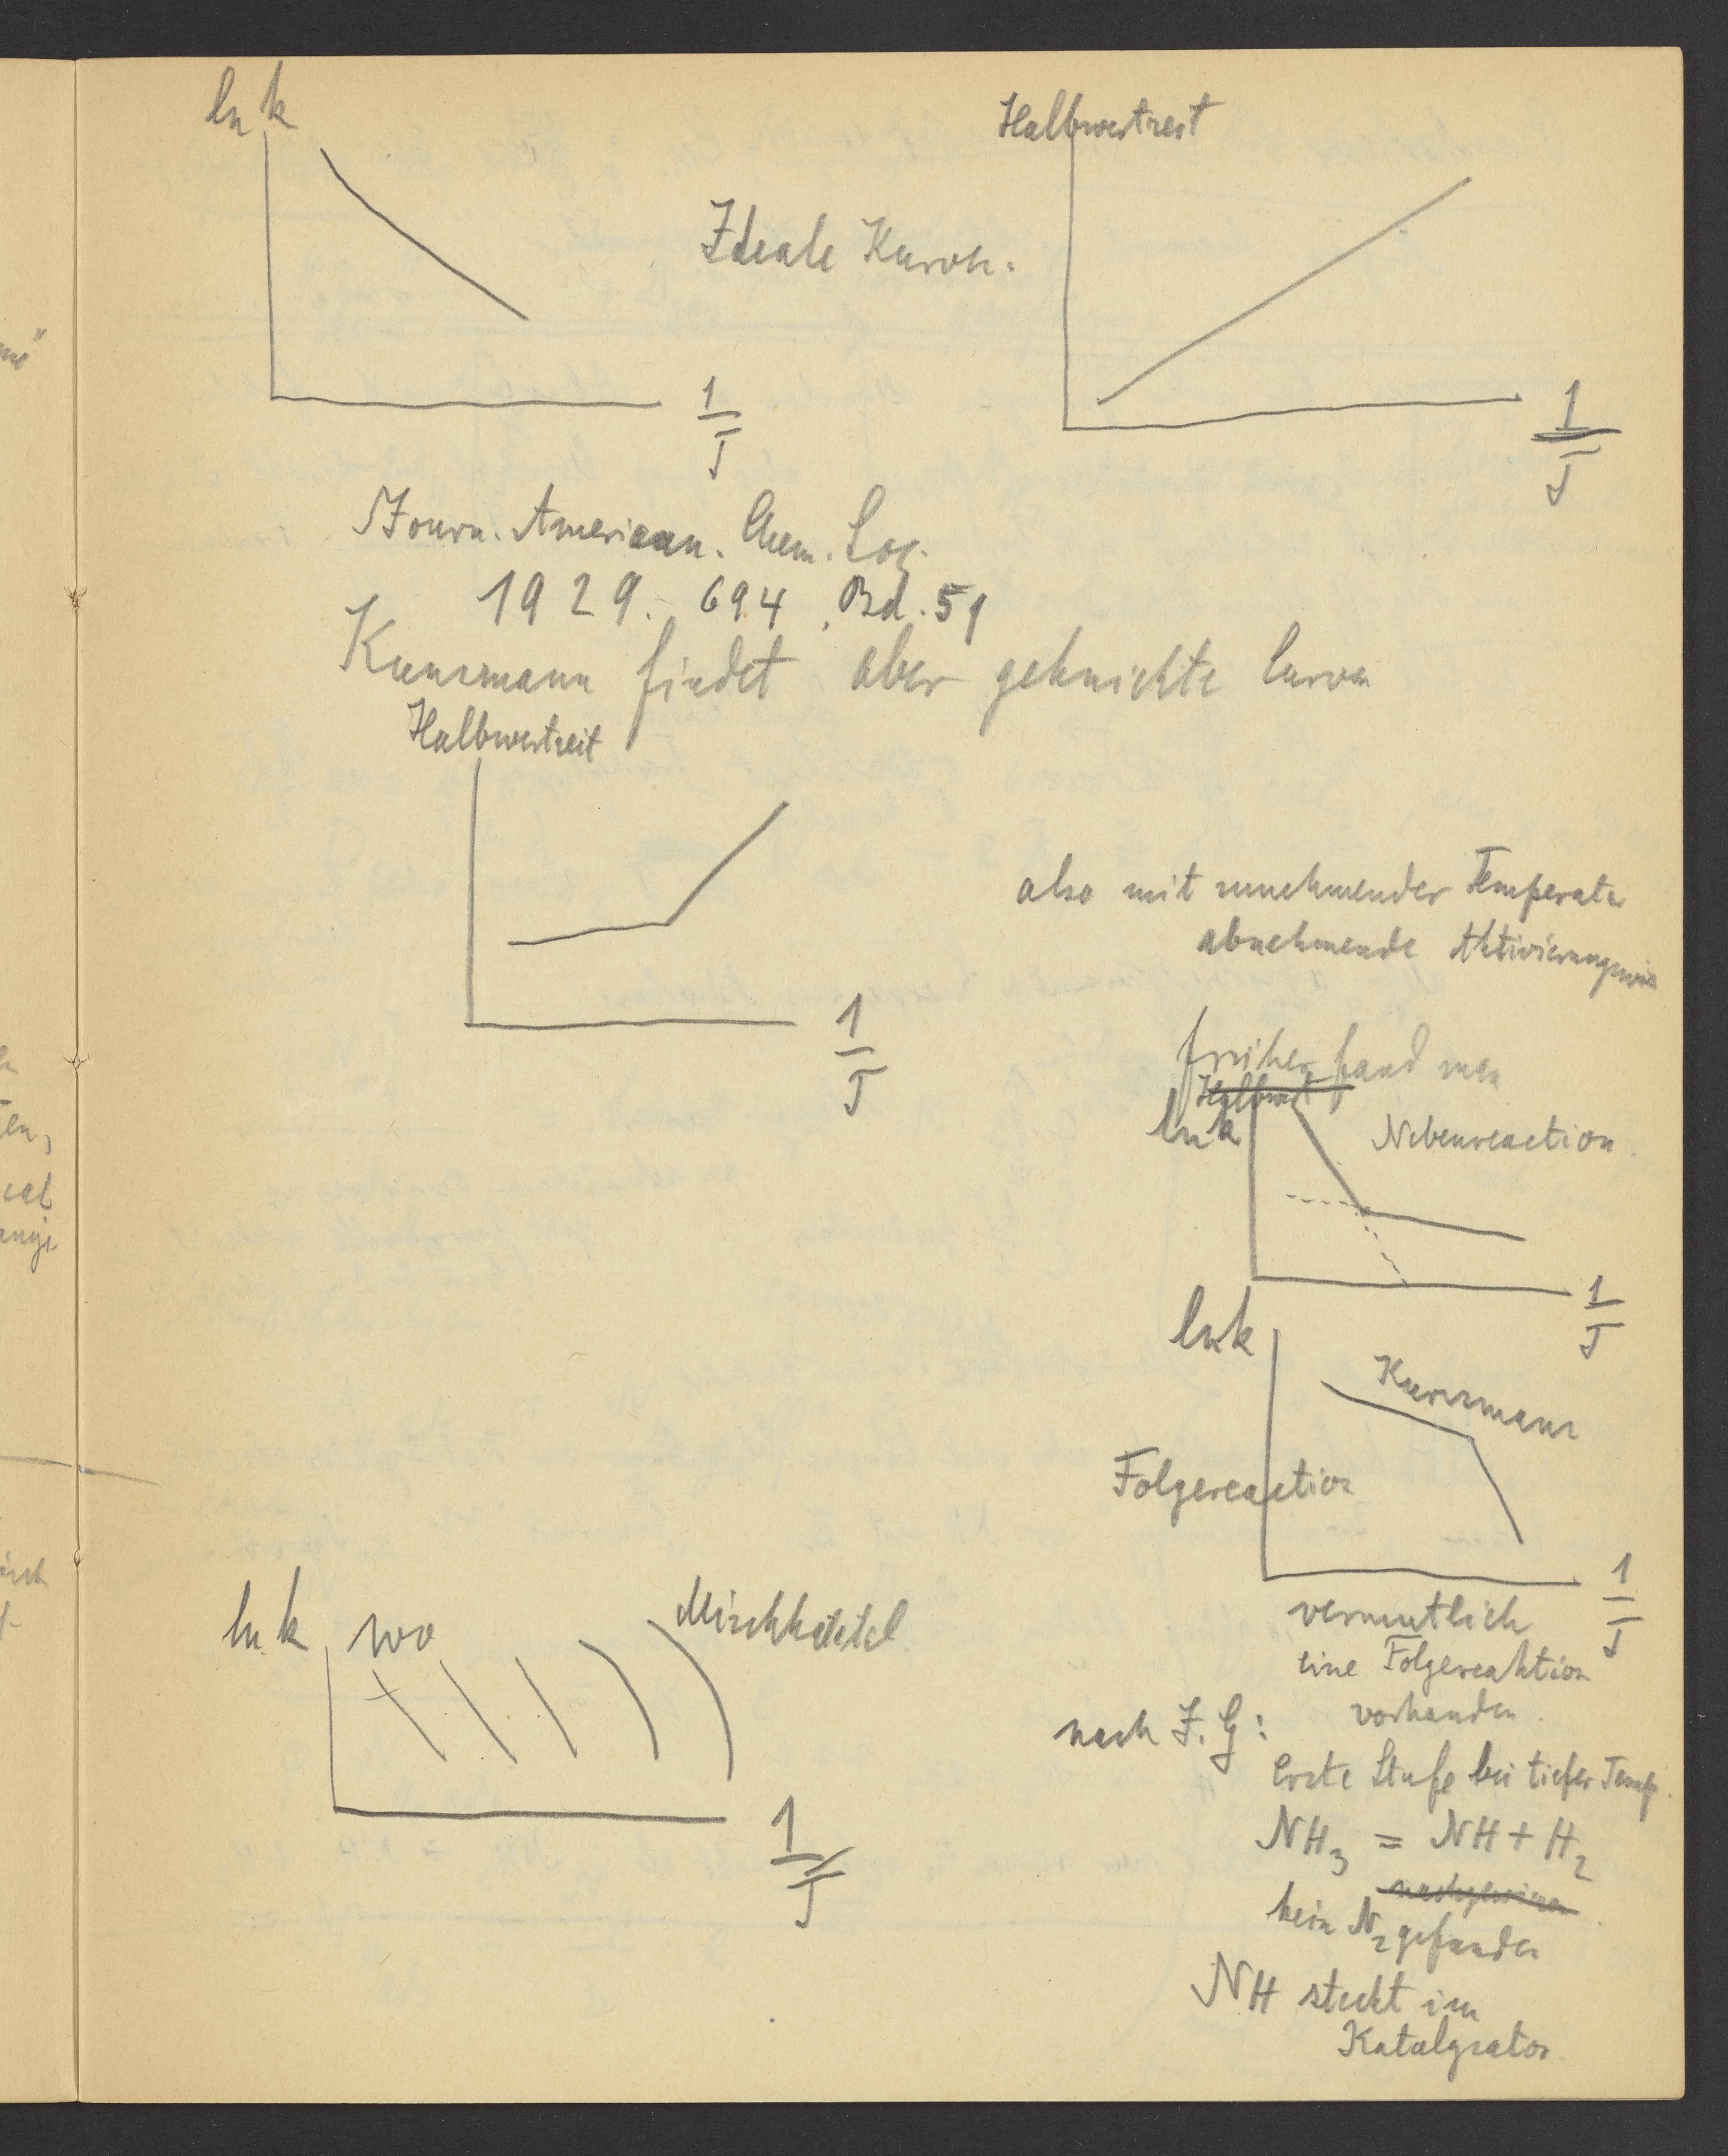 ln k
Halbwertzeit
Ideale Kurven.
1/T
1/T
Journ. American. Chem. Soc.
1929. 694, Bd. 51
Kunsmann findet aber geknickte Curven
Halbwertzeit
1/T
also mit zunehmender Temperatur
abnehmende Aktivierungswä
früher fand man
ln k
Nebenreaction.
1/T
ln k
Kunsmann
Folgereaction
1/T
vermutlich
eine Folgereaktion
vorhanden.
ln k
Mischkatal
1/T
nach I.G:
erste Stufe bei tiefer Temp.
NH3 = NH + H2
kein N2 gefunden
NH steckt im
Katalysator.